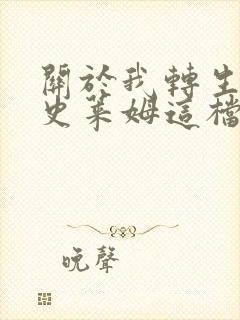 關於我轉生
史萊姆這檔
晚聲